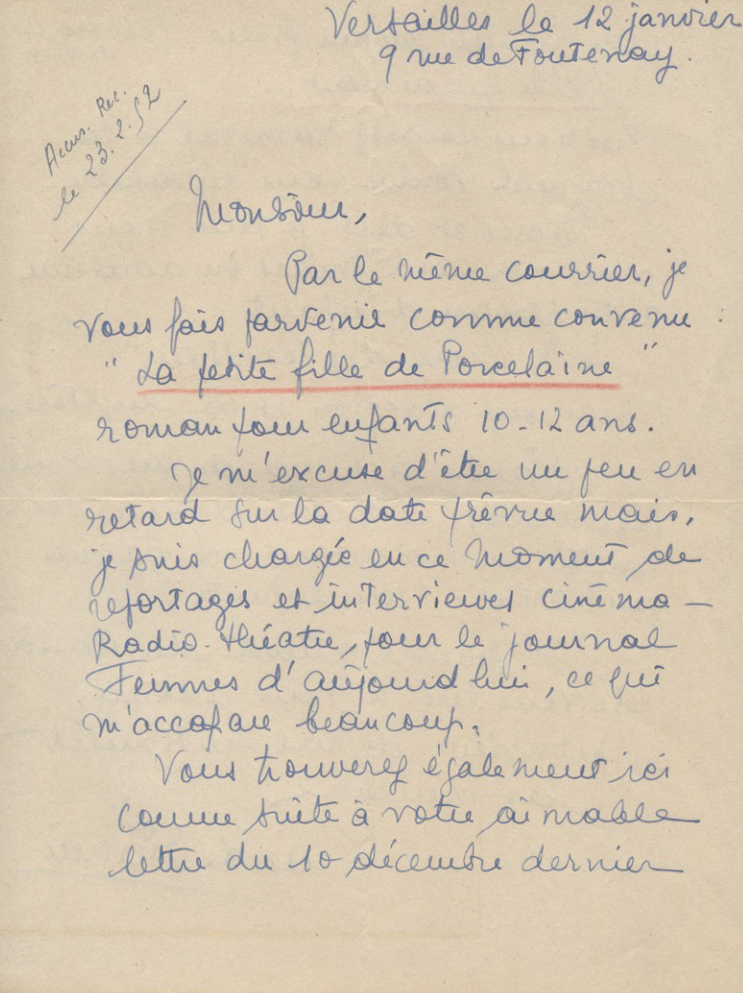 Versailles le 12 janvier
9 rue de Fontenay.
Accus. Rec.
le 23.2.52
Monsieur,
Par le même courrier, je
vous fais parvenir comme convenu :
" La petite fille de Porcelaine "
roman pour enfants 10-12 ans.
Je m'excuse d'être un peu en
retard sur la date prévue mais,
je suis chargée en ce moment de
reportages et interviewes cinéma -
Radio-théatre, pour le journal
Femmes d'aujourd'hui, ce qui
m'accapare beaucoup.
Vous trouverez également ici
comme suite à votre aimable
lettre du 10 décembre dernier